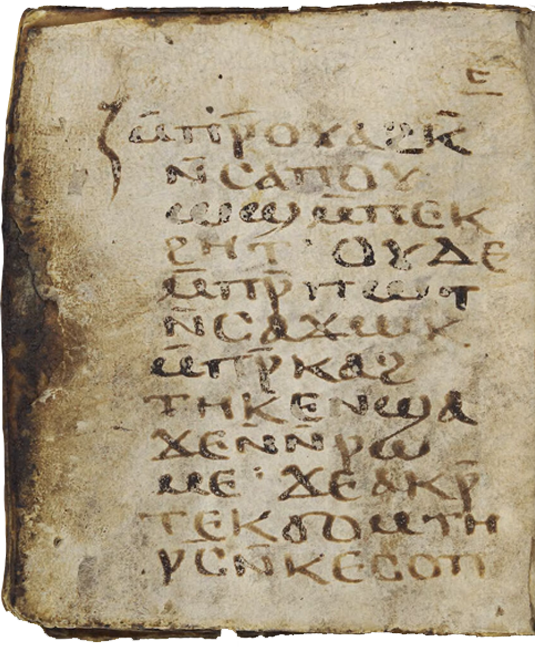 ⲉ̅
ⲙ̄ⲡⲣ̄ⲟⲩⲁϩⲕ̄
ⲛ̄ⲥⲁⲡⲟⲩ
ⲱϣⲙ̄ⲡⲉⲕ
ϩⲏⲧ· ⲟⲩⲇⲉ
ⲙ̄ⲡⲣ̄ⲡⲱⲧ
ⲛ̄ⲥⲁϫⲱⲕ
ⲙ̄ⲡⲣ̄ⲕⲁϩ
ⲧⲏⲕⲉⲛϣⲁ
ϫⲉⲛ̄ⲛ̄ⲣⲱ
ⲙⲉ· ϫⲉⲁⲕⲣ̄
ⲧⲉⲕϭⲟⲙⲧⲏ
ⲣⲥⲛ̄ⲕⲉⲥⲟⲡ